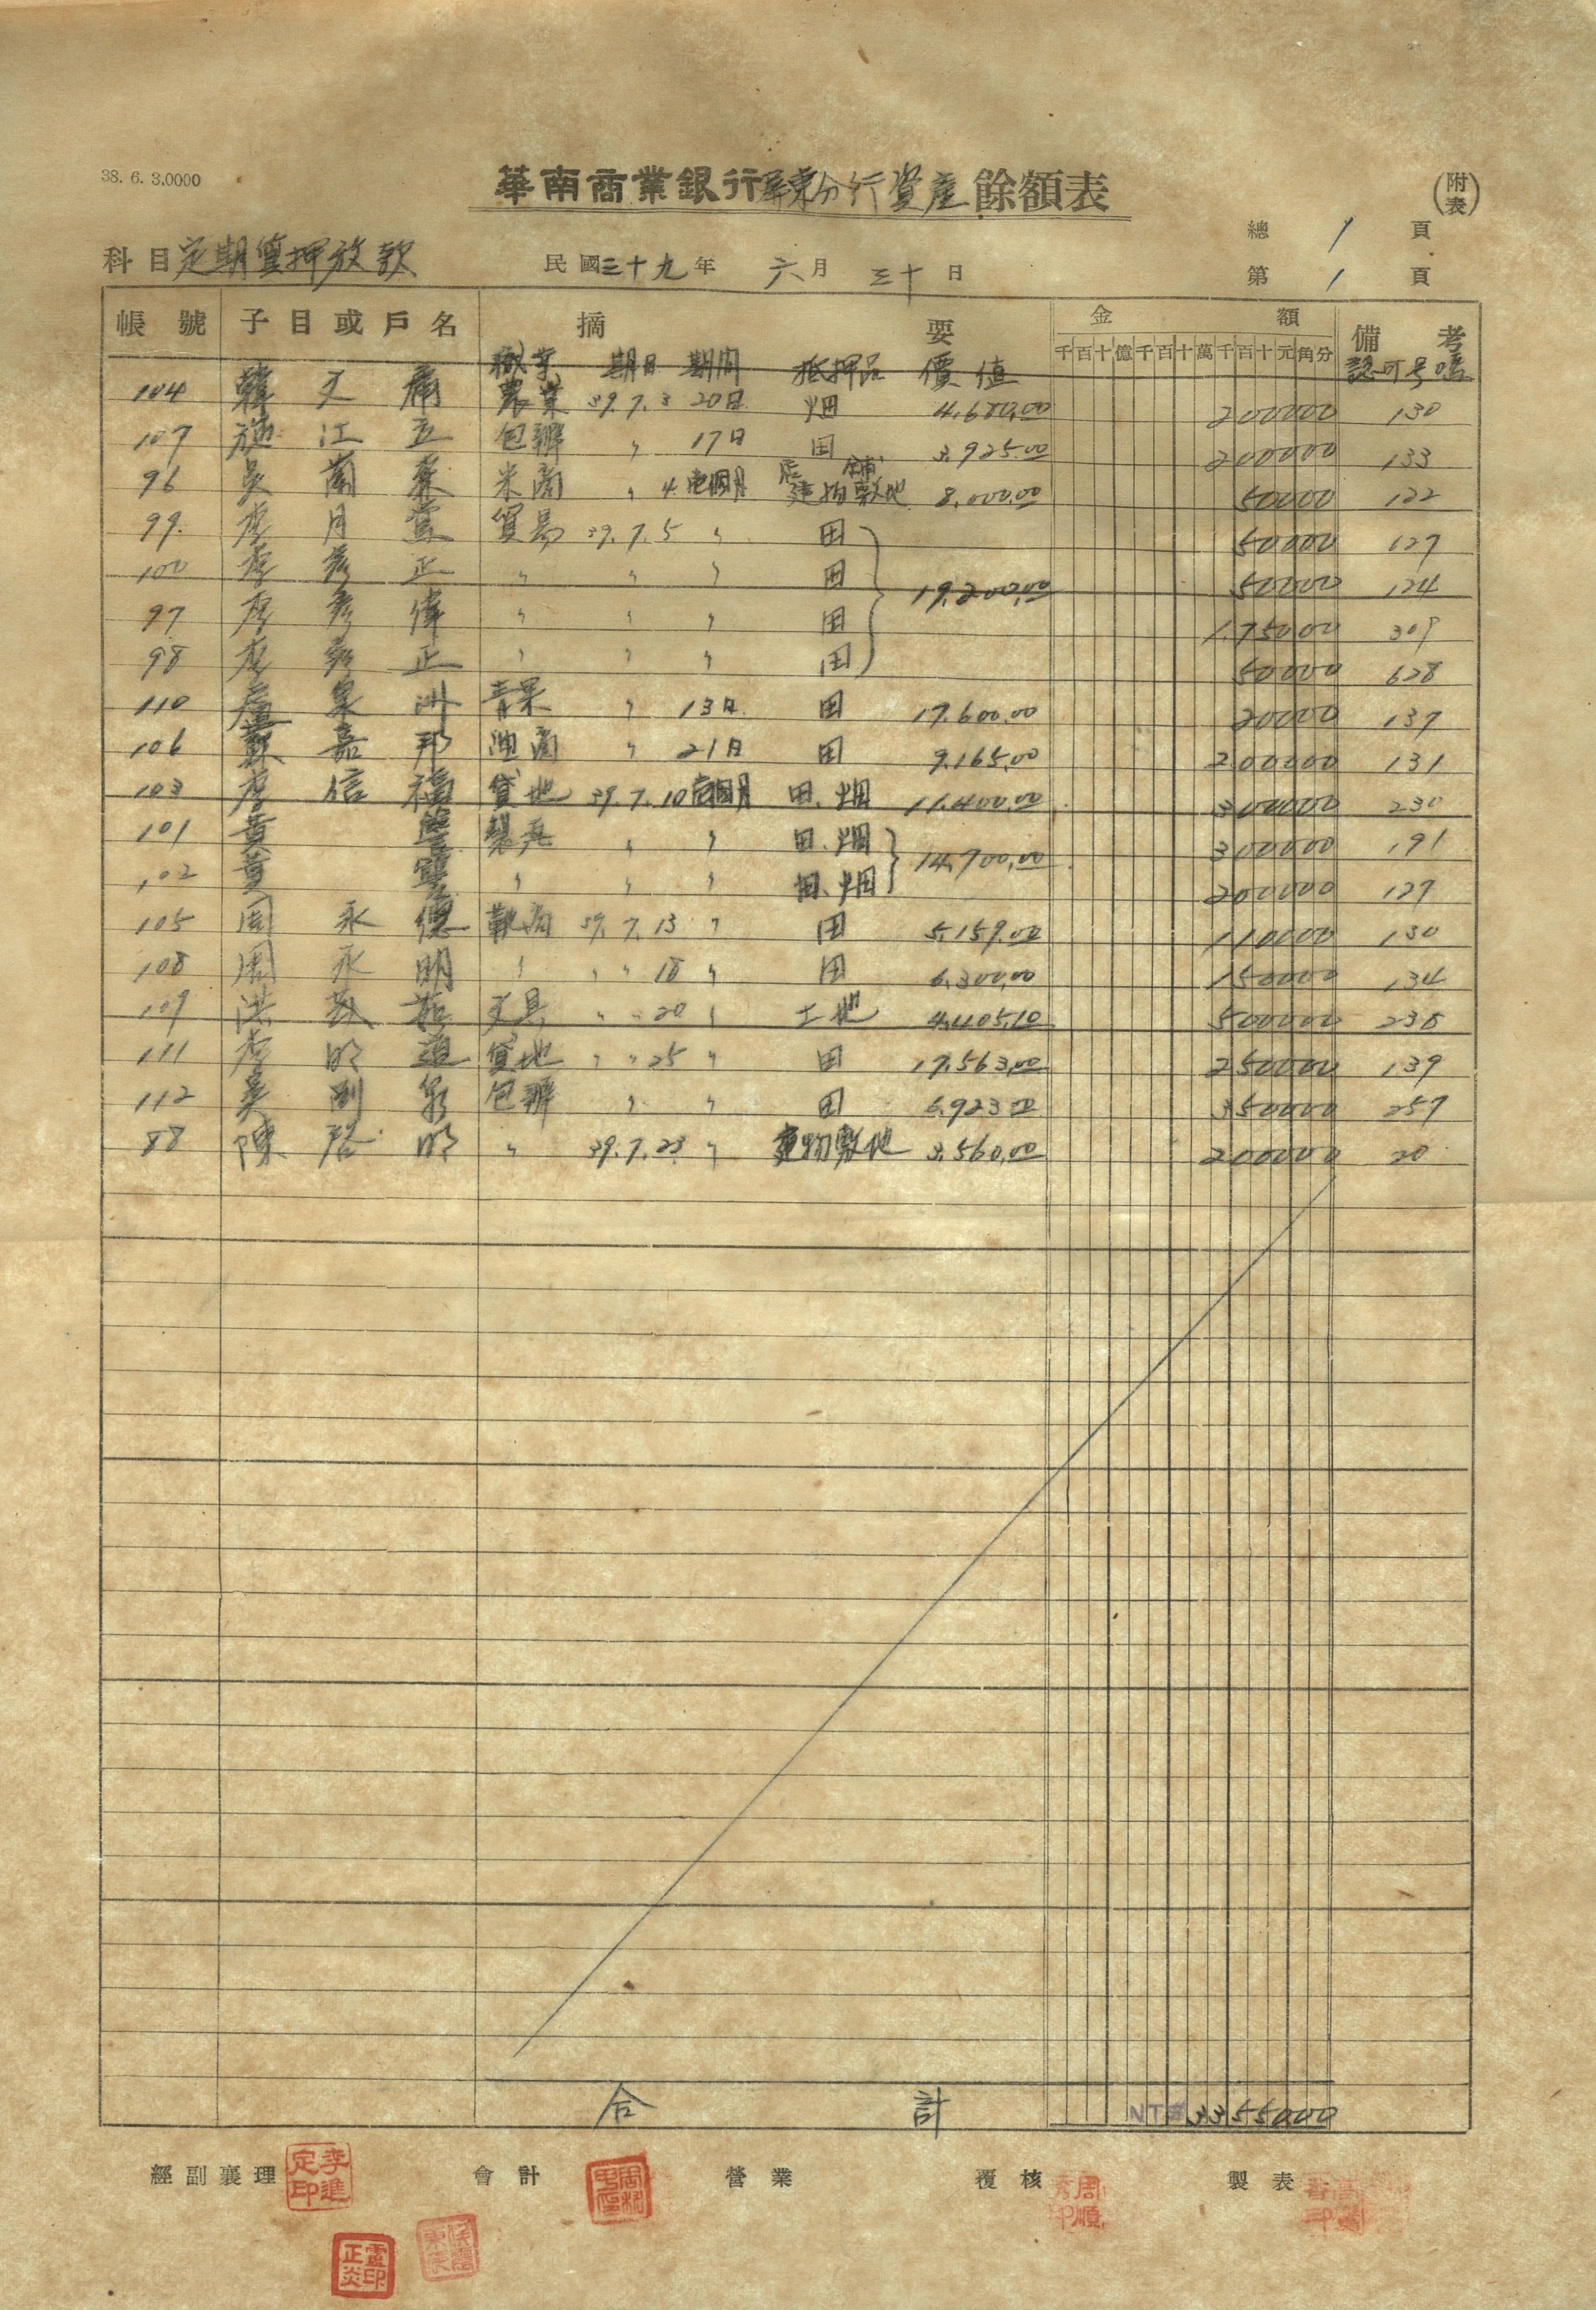 38. 6. 3.0000
華南商業銀行屏東分行資產餘額表
(附表)
總 1 頁
科目 定期質押放款 民國三十九年 六月 三十日 第 1 頁
帳號 子目或戶名 摘要 金額 備考
千百十億千百十萬千百十元角分
職業 期日 期間 抵押品 價值 認可号碼
104 韓 農業 39.7.3 20日 畑 4,680.00 200000 130
107 施江立 包辦 〃 17日 田 3,925.00 200000 133
96 吳蘭 米商 〃 4 個月 店舖 建物敷地 8,000.00 50000 122
99 李月 貿易 39.7.5 〃 田 50000 127
100 李彥正 〃 〃 〃 田 19,200.00 50000 124
97 李彥偉 〃 〃 〃 田 175000 309
98 李彥正 〃 〃 〃 田 50000 628
110 泉洲 青果 〃 13日 田 17,600.00 20000 137
106 蘇嘉邦 油商 〃 21日 田 9,165.00 200000 131
103 李信福 貸地 39.7.10 個月 田、畑 11,400.00 300000 230
101 黃 〃 〃 田、畑 14,700.00 300000 191
102 黃 〃 〃 〃 田、畑 200000 127
105 周永德 商 39.7.13 〃 田 5,159.00 110000 130
108 周永明 〃 〃 〃 18 〃 田 6,300.00 150000 134
109 洪 文具 〃 〃 20 〃 土地 4,405.10 500000 238
111 李明道 貸地 〃 〃 25 〃 田 17,563.00 250000 139
112 吳 包辦 〃 〃 田 6,923.00 350000 257
88 陳啓明 〃 39.7.23 〃 建物敷地 3,560.00 200000 20
合計 NT$3355000
經副襄理 會計 營業 覆核 製表
李進定印